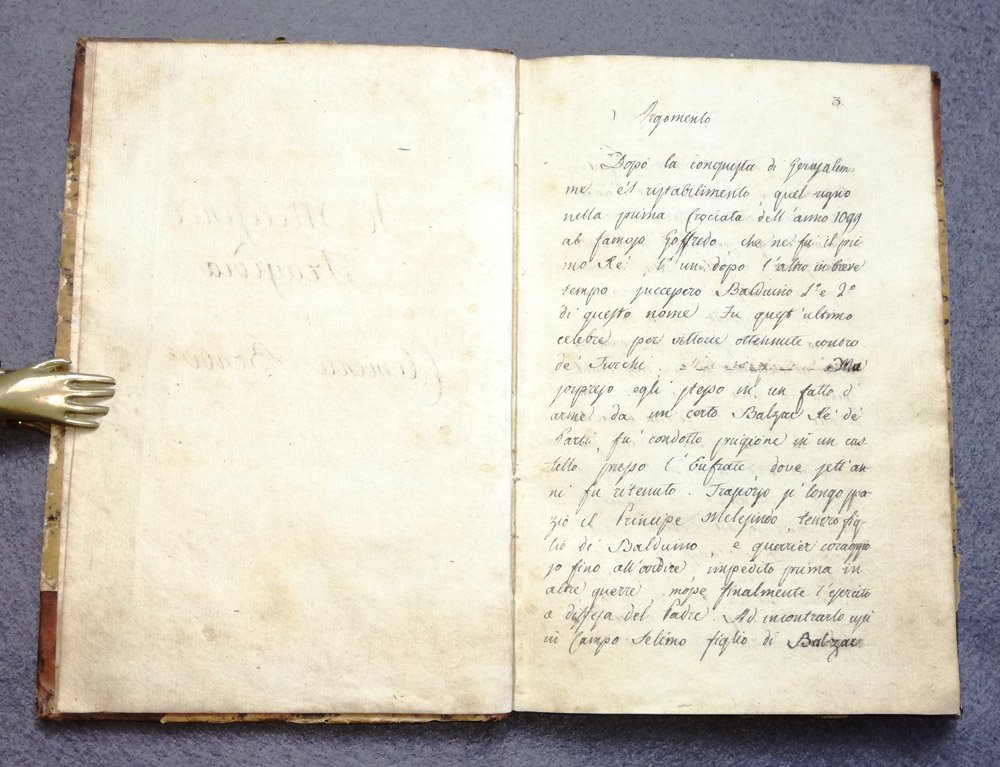 3.
Argomento
Dopo la conquista di Gerusalem-
me, e'l ristabilimento, quel regno
nella prima Crociata dell'anno 1099
al famoso Goffredo, che ne fu il pri
mo Ré, l'un dopo l'altro in breve
tempo successero Balduino 1º e 2º
di questo nome. Fu quest'ultimo
celebre per vittorie ottennute contro
de' Turchi. Ma
sorpreso egli stesso in un fatto d'
arme da un certo Balzac Ré de'
Parti, fu condotto prigione in un cas
tello presso l'Eufrate, dove sett'an
ni fu ritenuto. Trascorso sì longo spa
zio il Principe Melesindo, tenero fig
lio di Balduino, e guerrier coraggio
so fino all'ardire, impedito prima in
altre guerre, mosse finalmente l'esercito
a diffesa del Padre. Ad incontrarlo uscì
in Campo Selimo figlio di Balzac